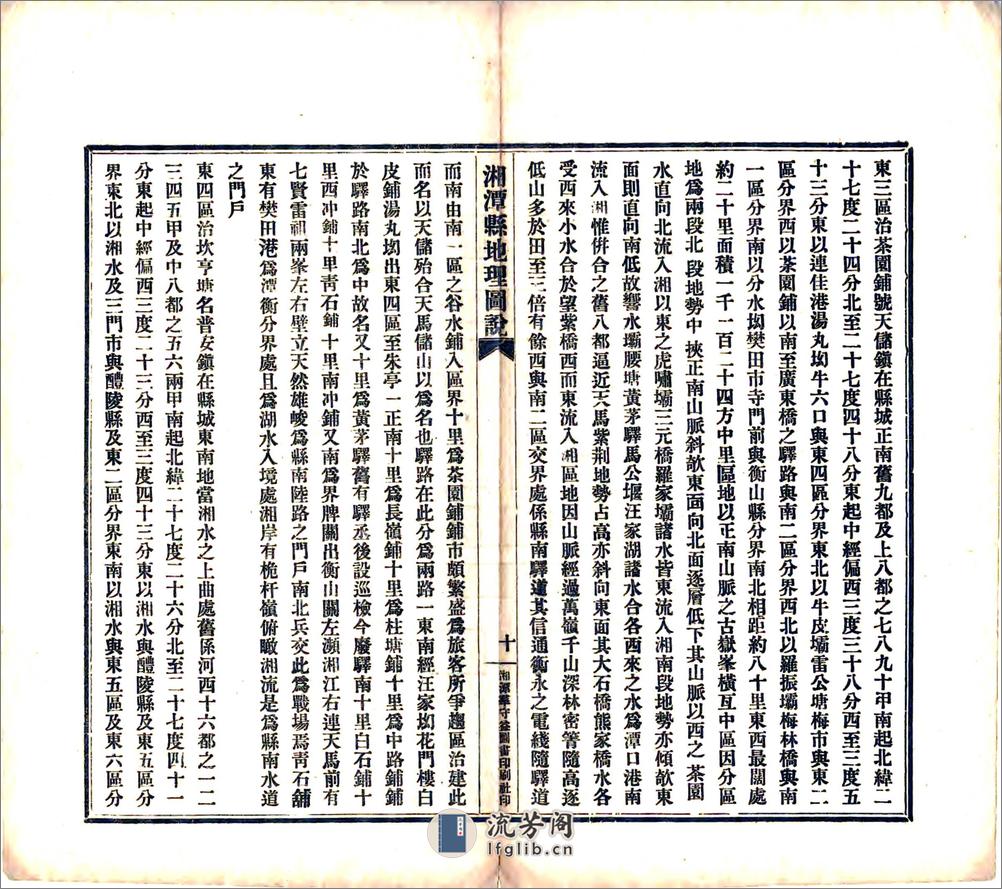 東三區治茶園鋪號天儲鎮在縣城正南舊九都及上八都之七八九十甲南起北緯二
十七度二十四分北至二十七度四十八分東起中經偏西三度三十八分西至三度五
十三分東以連佳港湯丸坳牛六口與東四區分界東北以牛皮壩雷公塘梅市與東二
區分界西以茶園鋪以南至廣東橋之驛路與南二區分界西北以羅振壩梅林橋與南
一區分界南以分水坳樊田市寺門前與衡山縣分界南北相距約八十里東西最闊處
約二十里面積一千一百二十四方中里區地以正南山脈之古嶽峯橫亙中區因分區
地爲兩段北段地勢中挾正南山脈斜欹東面向北面逐層低下其山脈以西之茶園
水直向北流入湘以東之虎嘯壩三元橋羅家壩諸水皆東流入湘南段地勢亦傾欹東
面則直向南低故響水壩腰塘黃茅驛馬公堰汪家湖諸水合各西來之水爲潭口港南
流入湘惟併合之舊八都逼近天馬紫荆地勢占高亦斜向東面其大石橋熊家橋水各
受西來小水合於望紫橋西而東流入湘區地因山脈經過萬嶺千山深林密箐隨高逐
低山多於田至三倍有餘西與南二區交界處係縣南驛道其信通衡永之電綫隨驛道
湘潭縣地理圖說
十
湘潭莘守益圖書印刷社印
而南由南一區之谷水鋪入區界十里爲茶園鋪鋪市頗繁盛爲旅客所爭趨區治建此
而名以天儲殆合天馬儲山以爲名也驛路在此分爲兩路一東南經汪家坳花門樓白
皮鋪湯丸坳出東四區至朱亭一正南十里爲長嶺鋪十里爲柱塘鋪十里爲中路鋪
於驛路南北爲中故名又十里爲黃茅驛舊有驛丞後設巡檢今廢驛南十里白石鋪十
里西冲鋪十里靑石鋪十里南冲鋪又南爲界牌關出衡山關左瀕湘江右連天馬前有
七賢雷祖兩峯左右壁立天然雄峻爲縣南陸路之門戶南北兵交此爲戰場焉靑石舖
東有樊田港爲潭衡分界處且爲湖水入境處湘岸有桅杆嶺俯瞰湘流是爲縣南水道
之門戶
東四區治坎亨塘名普安鎮在縣城東南地當湘水之上曲處舊係河西十六都之一二
三四五甲及中八都之五六兩甲南起北緯二十七度二十六分北至二十七度四十一
分東起中經偏西三度二十三分西至三度四十三分東以湘水與醴陵縣及東五區分
界東北以湘水及三門市與醴陵縣及東二區分界東南以湘水與東五區及東六區分
流芳阁
lfglib.cn